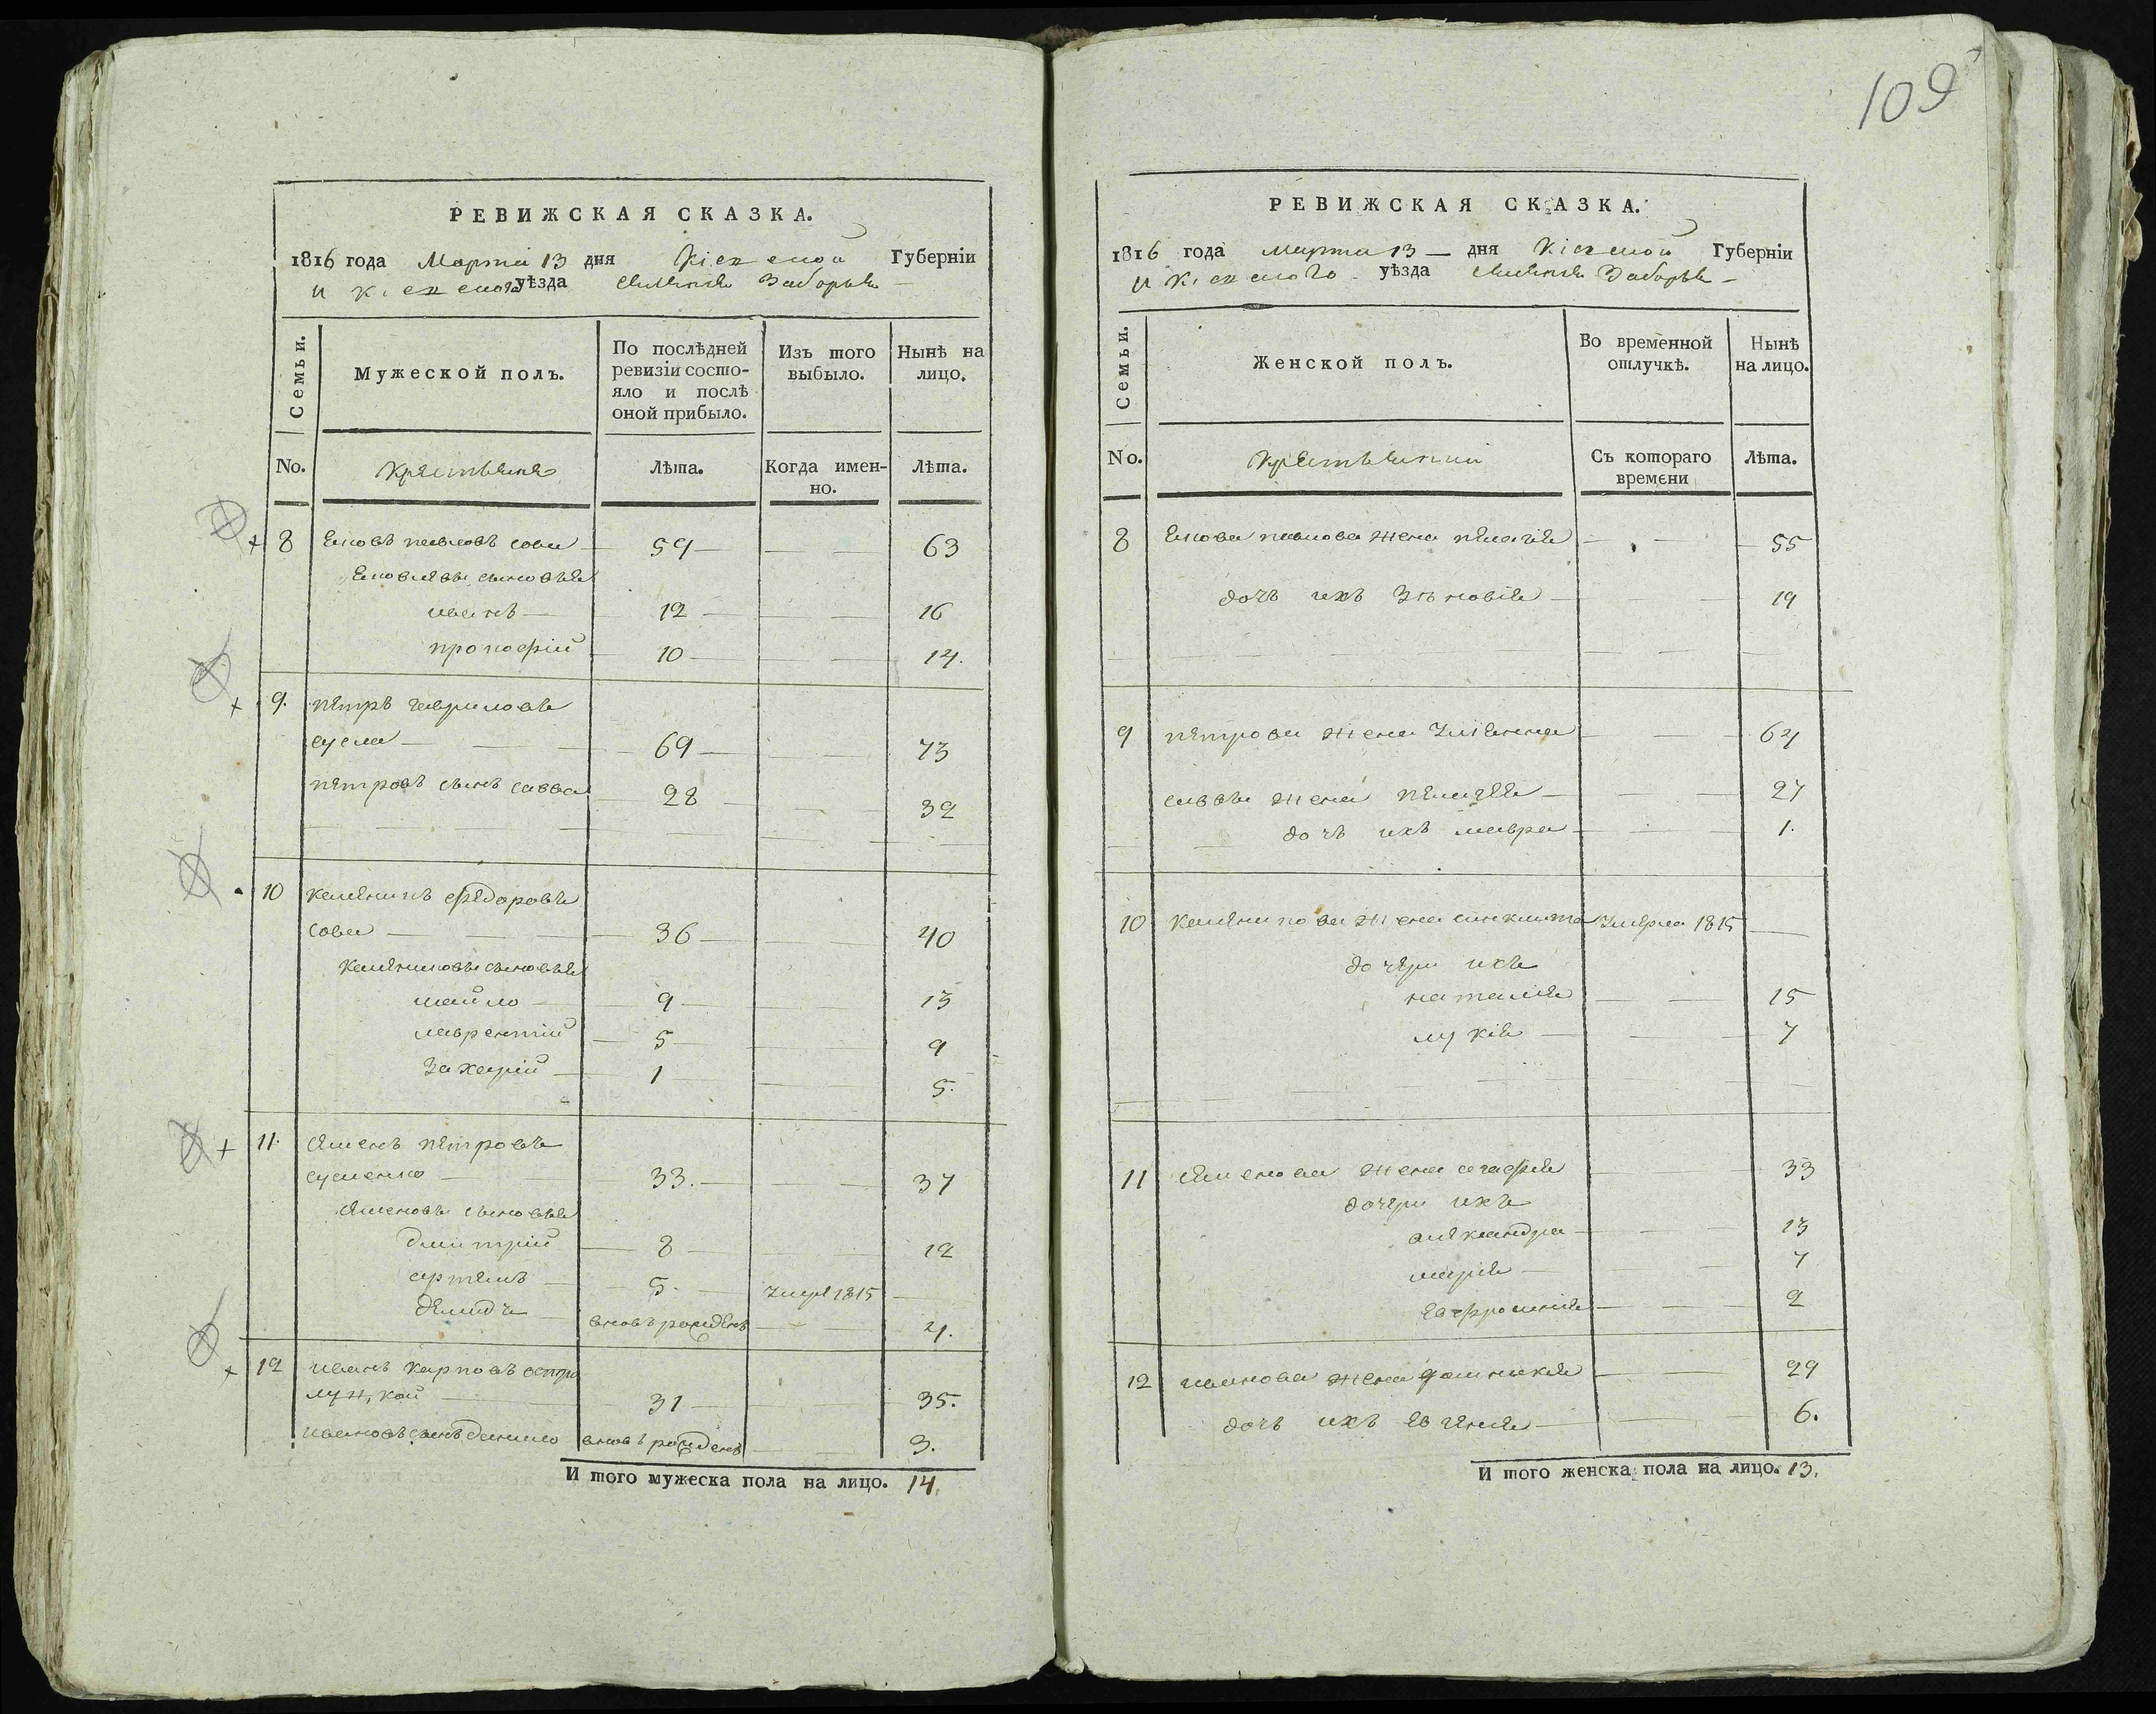 РЕВИЖСКАЯ СКАЗКА.
1816 года Марта 13 дня Кіевской Губерніи
и Кіевского уѣзда селенія Заборья
Семьи.
Мужеской полъ.
По послѣдней ревизіи состо-
яло и послѣ
оной прибыло.
Изъ того
выбыло.
Нынѣ на
лицо.
No.
Крестьяне
Лѣта.
Когда имен-
но.
Лѣта.
8 Яковъ павловъ сова 59 63
Яковлевы сыновья
иванъ 12 16
прокофій 10 14.
9. петръ гавриловъ
сусла 69 73
петровъ сынъ савва 28 32
10 каленикъ федоровъ
сова 36 40
калениковы сыновья
10 9 13
лаврентій 5 9
захарій 1 5.
11. семенъ петровъ
сусленко 33. 37
семеновы сыновья
дмитрій 8 12
артемъ 5. умре 1815
демидъ вновь рожденъ 4.
12 иванъ карповъ 31 35.
ивановъ сынъ данило вновь рожденъ 3.
И того мужеска пола на лицо. 14.
109
РЕВИЖСКАЯ СКАЗКА.
1816 года марта 13 дня Кіевской Губерніи
и Кіевского уѣзда селенія Заборья
Семьи.
Женской полъ.
Во временной
отлучкѣ.
Нынѣ
на лицо.
No.
Крестьянки
Съ котораго
времени
Лѣта.
8 Якова павлова жена пелагія 55
дочь ихъ зѣновія 19
9 петрова жена уліянна 64
саввы жена пелагея 27
дочь ихъ мавра 1.
10 каленикова жена умерла 1815
дочери ихъ
наталія 15
лукія 7
11 семенова жена агафія 33
дочери ихъ
александра 13
марія 7
евфросинія 2
12 иванова жена домникія 29
дочь ихъ евгенія 6.
И того женска пола на лицо. 13.